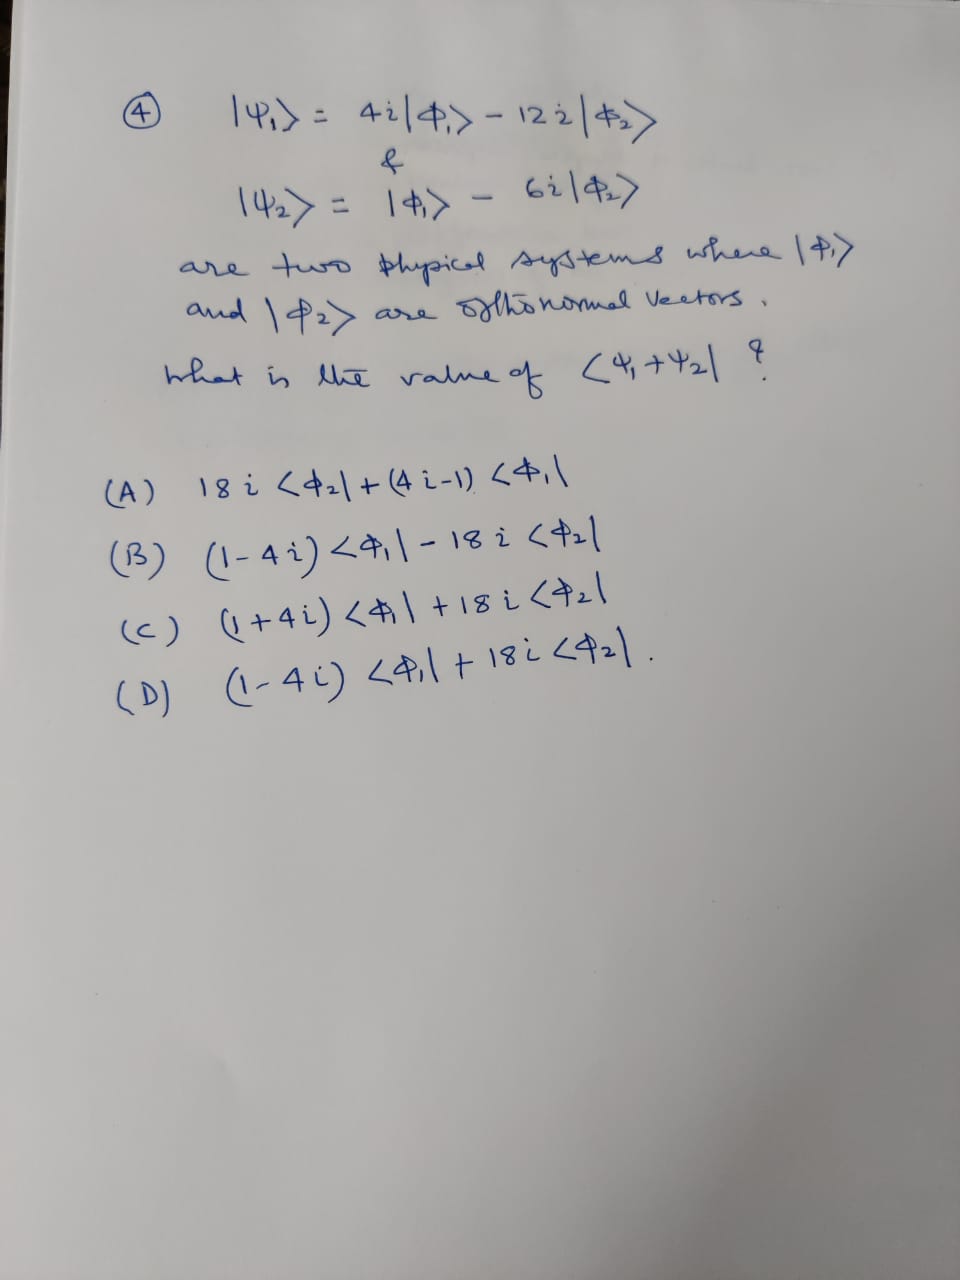 ④ |ψ₁⟩ = 4i|ϕ₁⟩ - 12i|ϕ₂⟩
&
|ψ₂⟩ = |ϕ₁⟩ - 6i|ϕ₂⟩
are two physical systems where |ϕ₁⟩
and |ϕ₂⟩ are orthonormal vectors.
What is the value of ⟨ψ₁+ψ₂| ?
(A) 18i⟨ϕ₂| + (4i-1)⟨ϕ₁|
(B) (1-4i)⟨ϕ₁| - 18i⟨ϕ₂|
(C) (1+4i)⟨ϕ₁| + 18i⟨ϕ₂|
(D) (1-4i)⟨ϕ₁| + 18i⟨ϕ₂|.